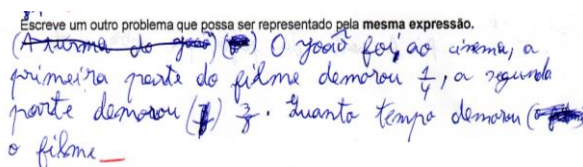 Escreve um outro problema que possa ser representado pela mesma expressão.
(A turma do joão) O joão foi, ao cinema, a
primeira parte do filme demorou 1/4, a segunda
parte demorou 3/8. Quanto tempo demorou
o filme